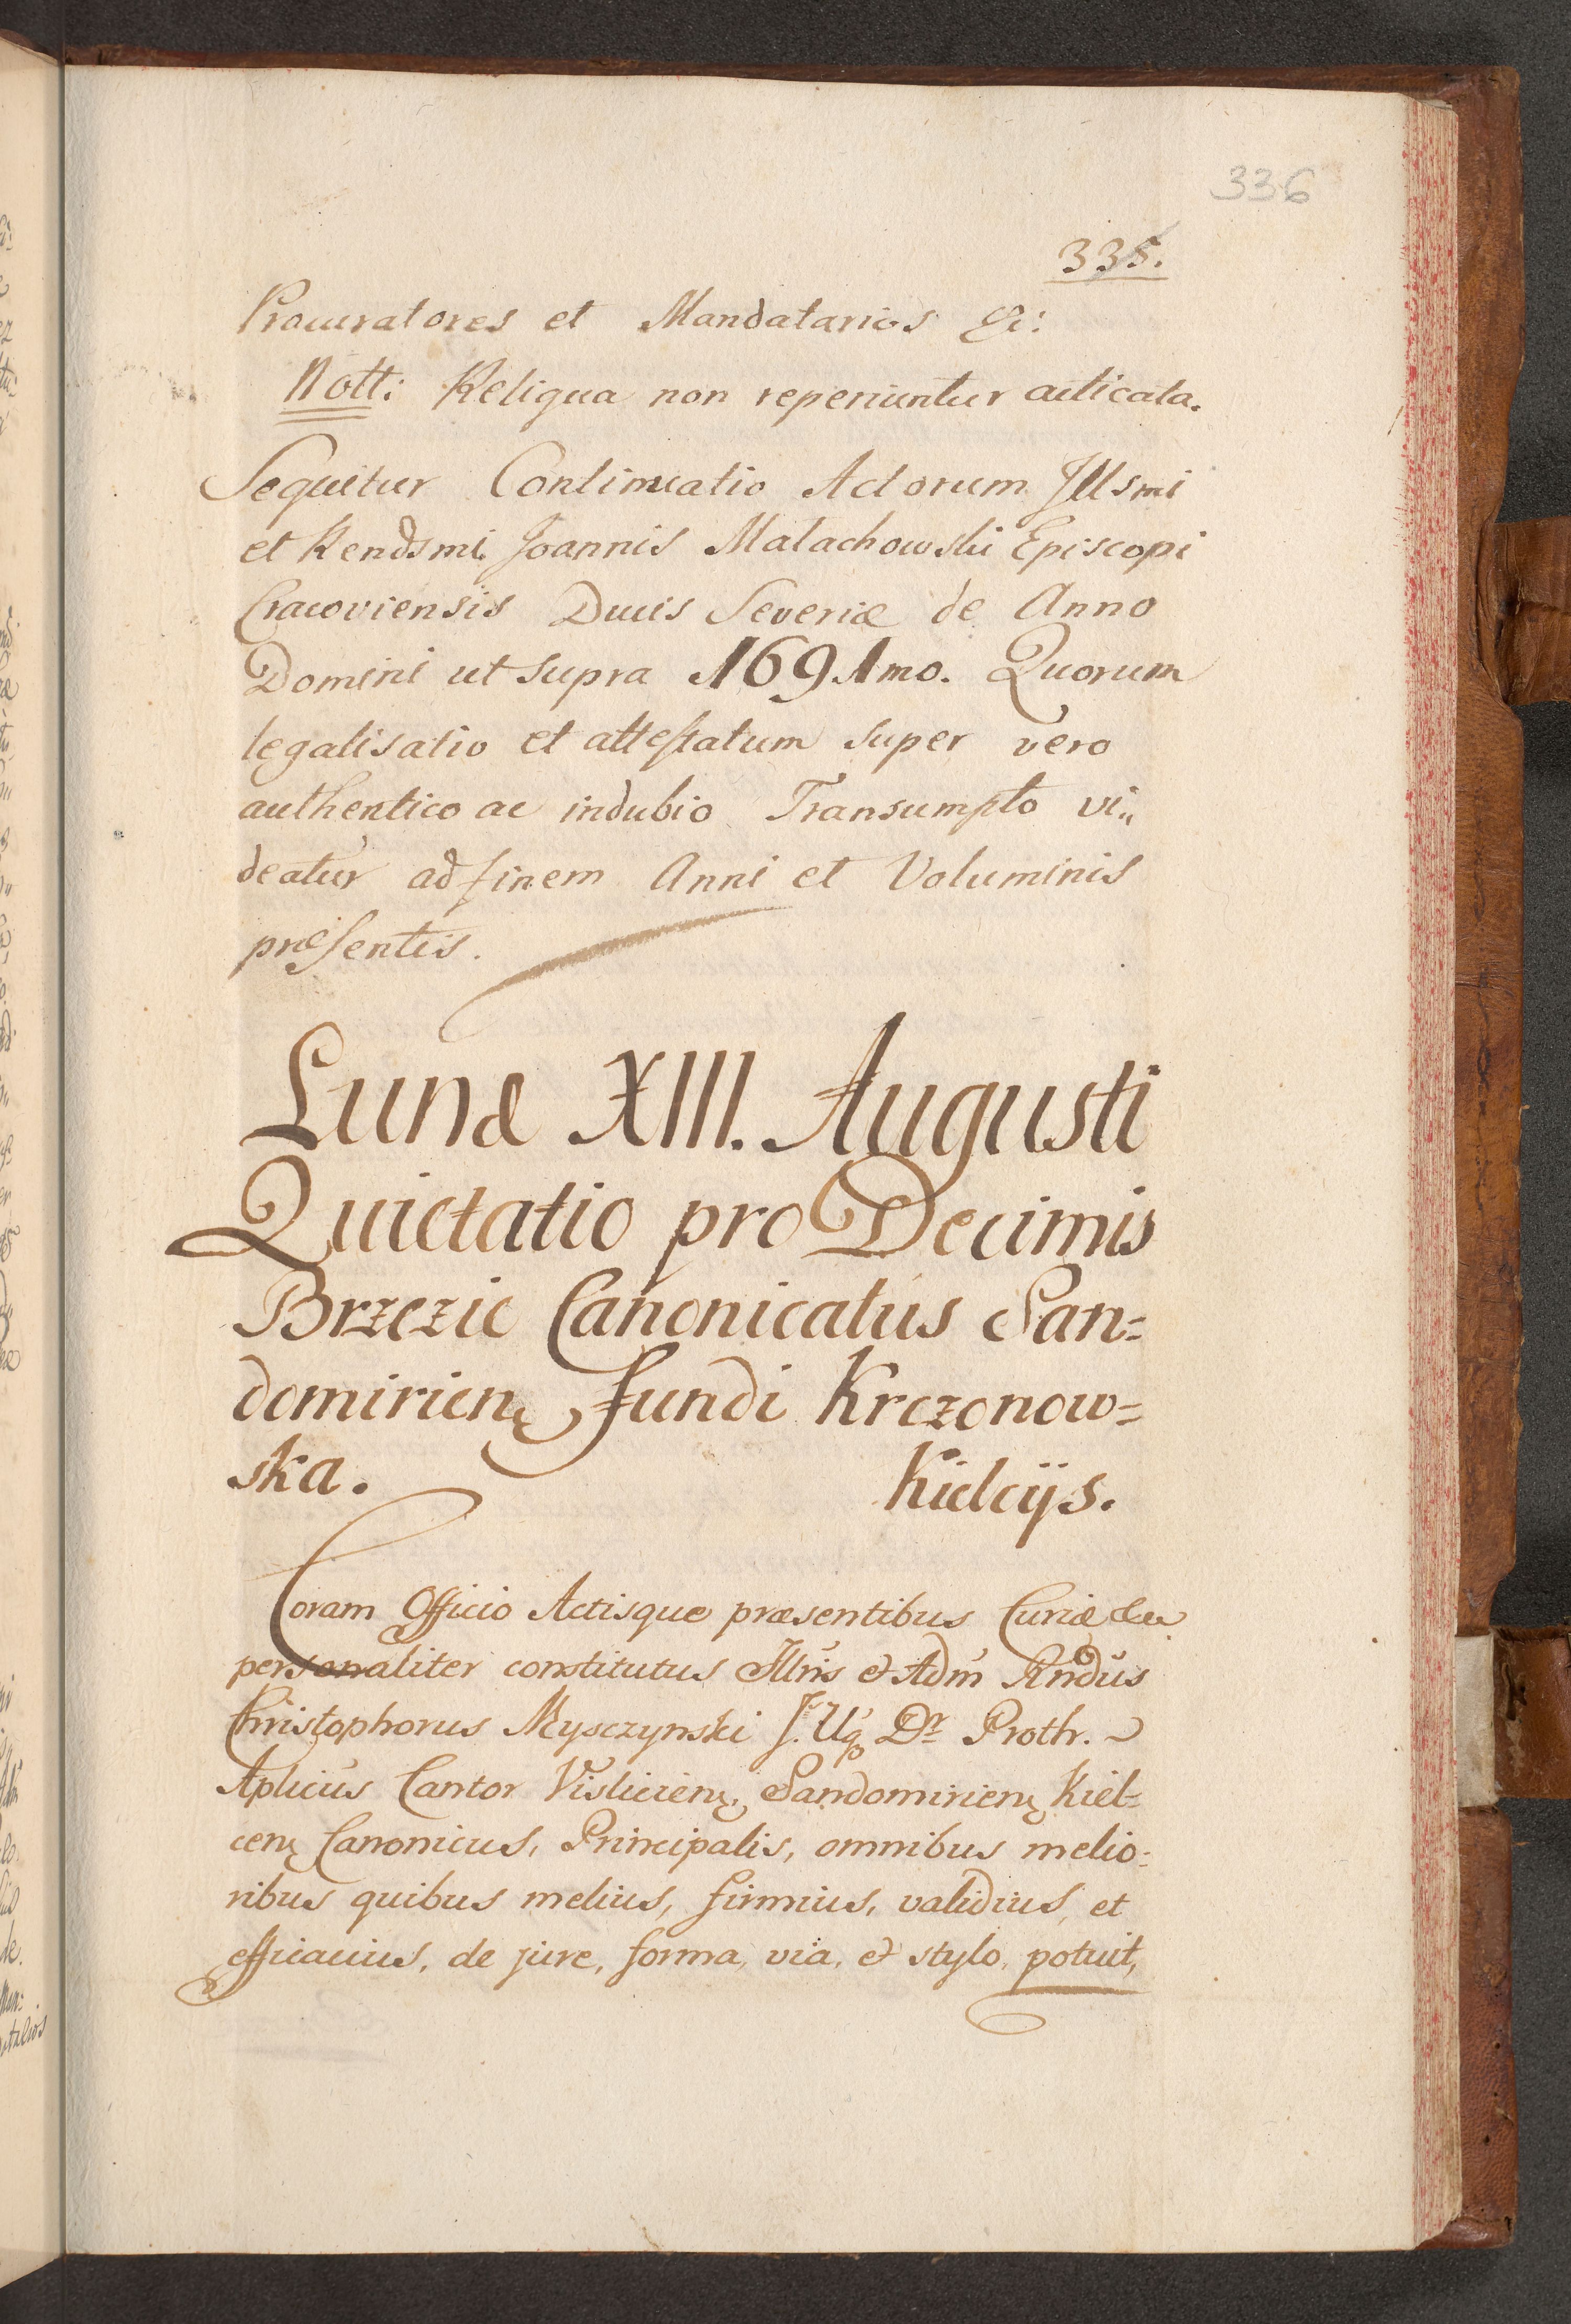 336
335.
Procuratores et Mandatarios &c:
Nott: Reliqua non reperiuntur acticata.
Sequitur Continuatio Actorum Illsmi
et Rendsmi Joannis Małachowski Episcopi
Cracoviensis Ducis Severiæ de Anno
Domini ut supra 1691mo. Quorum
legalisatio et attestatum super vero
authentico ac indubio Transumpto vi„
deatur ad finem Anni et Voluminis
præsentis.
Lunæ XIII. Augusti
Quietatio pro Decimis
Brzezie Canonicatus San=
domirien: fundi Krczonow=
ska. Kielcijs.
Coram Officio Actisque præsentibus Curiæ &cæ
personaliter constitutus Illris et Adm Rndus
Christophorus Mysczynski J. Uq Dr Proth.
Aplicus Cantor Vislicien: Sandomirien: Kiel=
cen: Canonicus, Principalis, omnibus melio=
ribus quibus melius, firmius, validius, et
efficacius, de jure, forma, via, et stylo, potuit,